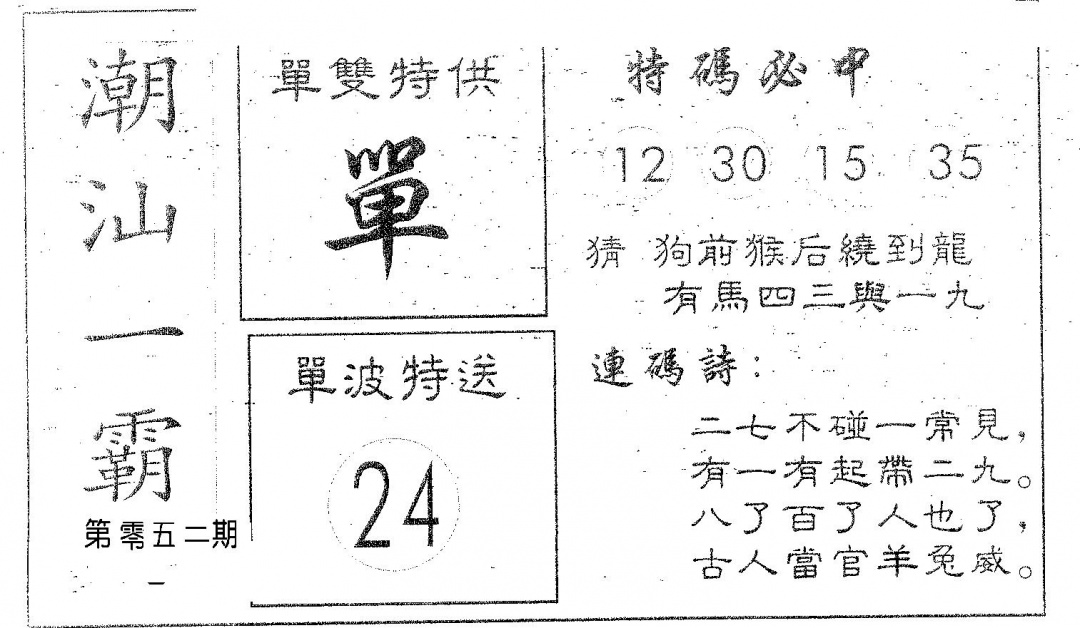 潮汕一霸
第零五二期
單雙特供
單
單波特送
24
特碼必中
12 30 15 35
猜 狗前猴后繞到龍
有馬四三與一九
連碼詩：
二七不碰一常見，
有一有起帶二九。
八了百了人也了，
古人當官羊兔威。